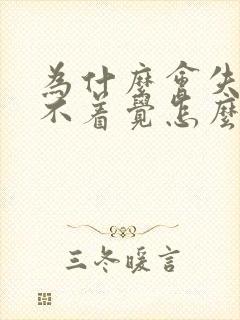 為什麼會失
不着覺怎麼
三冬暖言